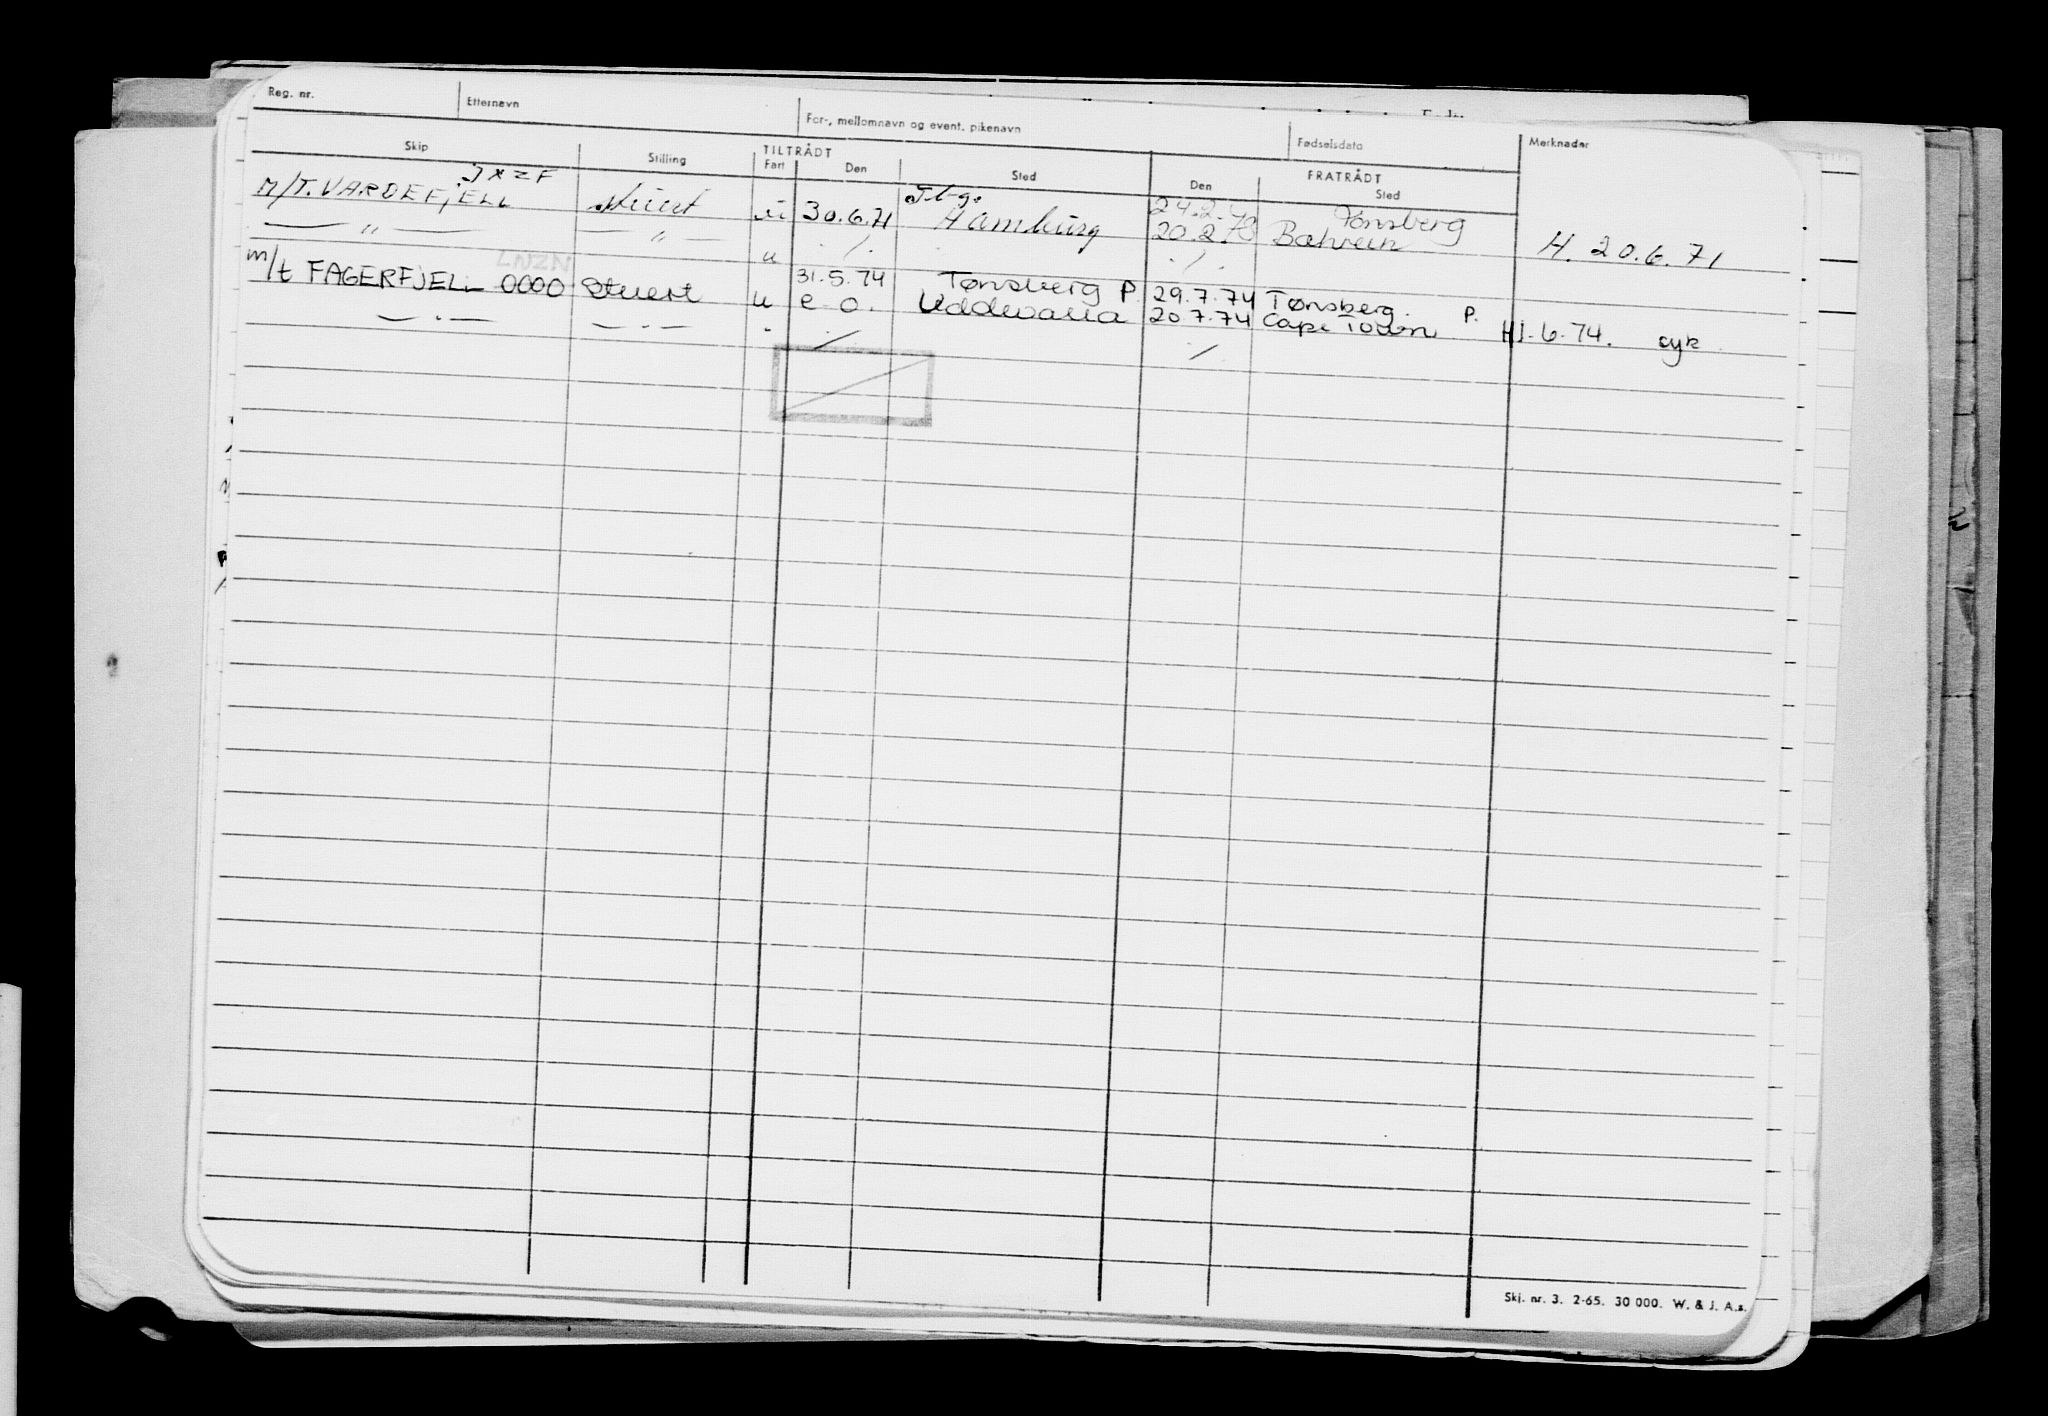 Reg. nr. Etternavn For-, mellomnavn og event. pikenavn Fødselsdato Merknader
Skip Stilling TILTRÅDT FRATRÅDT
Fart Den Sted Den Sted
JXZF Tbg. 24.2. Tønsberg
M/T. VARDEFJELL stuert u 30.6.71 Hamburg 20.2. Bahrein H. 20.6.71
— " — — " — u ./. ./.
LNZN 31.5.74 Tønsberg P 29.7.74 Tønsberg P.
m/t FAGERFJELL 0000 Stuert u e-o. Uddevalla 20.7.74 Cape Town H 1.6.74. syk
— " — — " — " ./. ./.
Skj. nr. 3. 2-65. 30 000. W. & J. A.s.